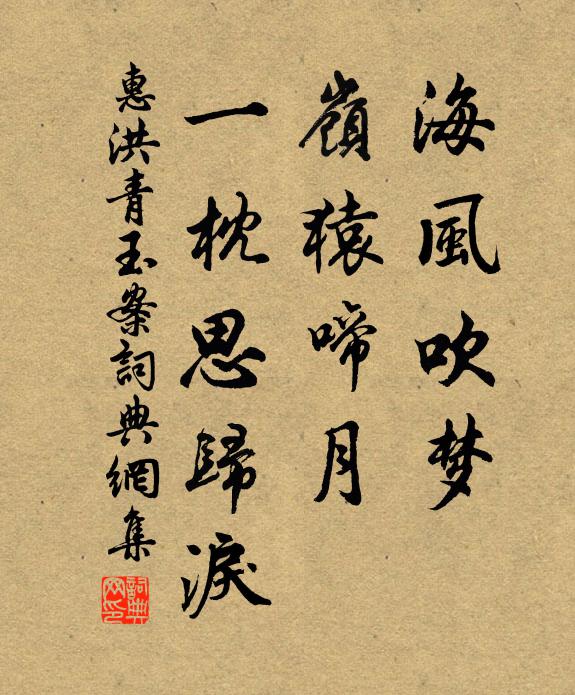 海風吹梦
嶺猿啼月
一枕思歸淚
惠洪青玉案詞典網集
詞典网印